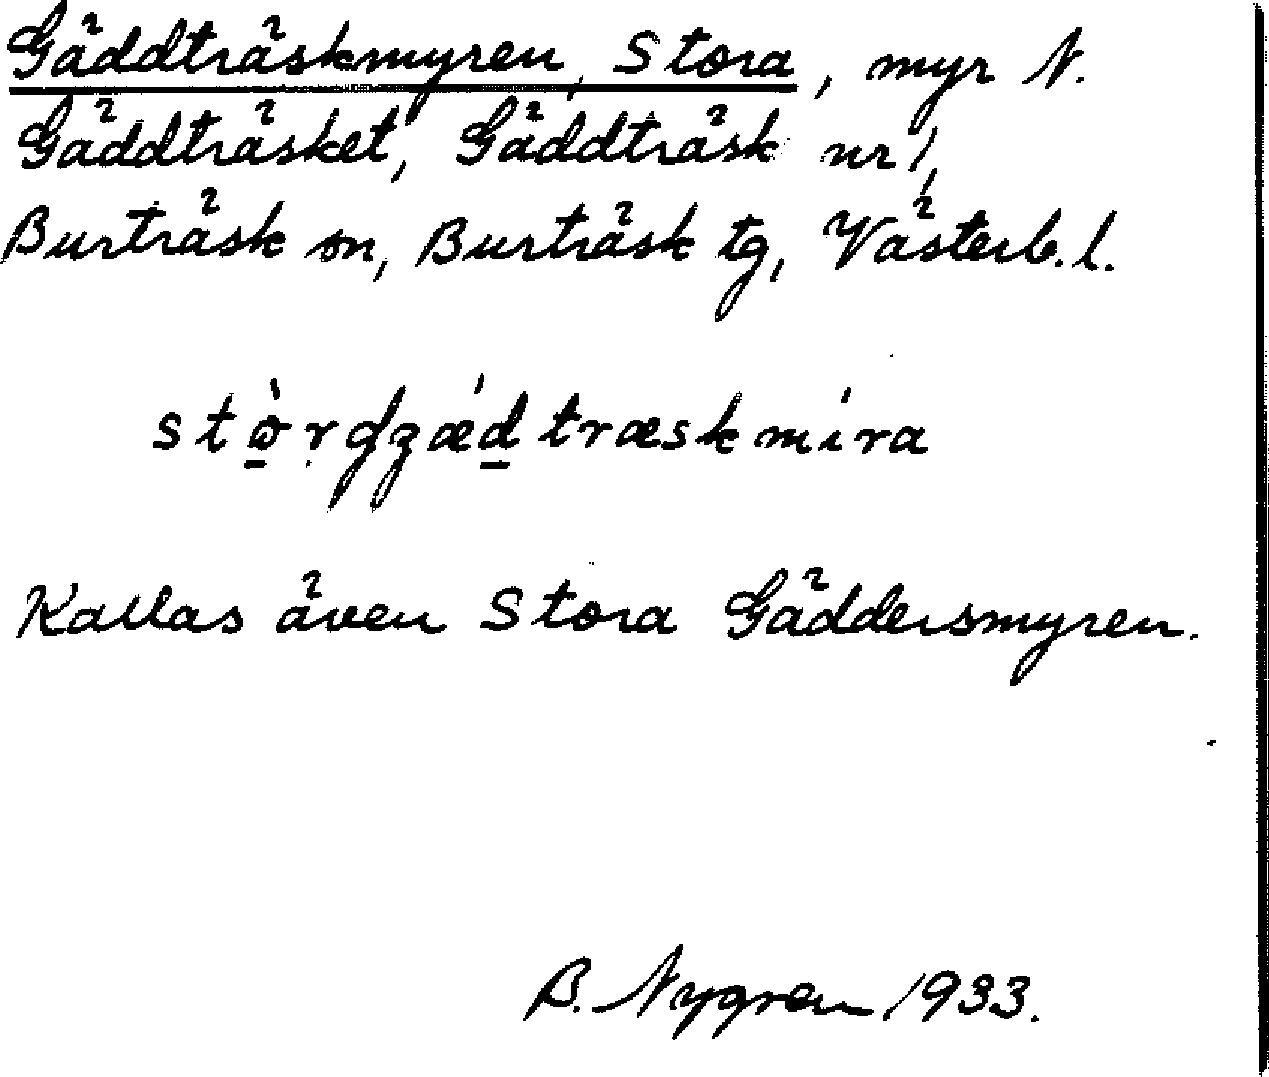 Gäddträskmyren, Stora, myr N.
Gäddträsket, Gäddträsk nr 1,
Burträsk sn, Burträsk tg, Västerb. l.
Kallas även Stora Gäddersmyren.
B. Nygren 1933.